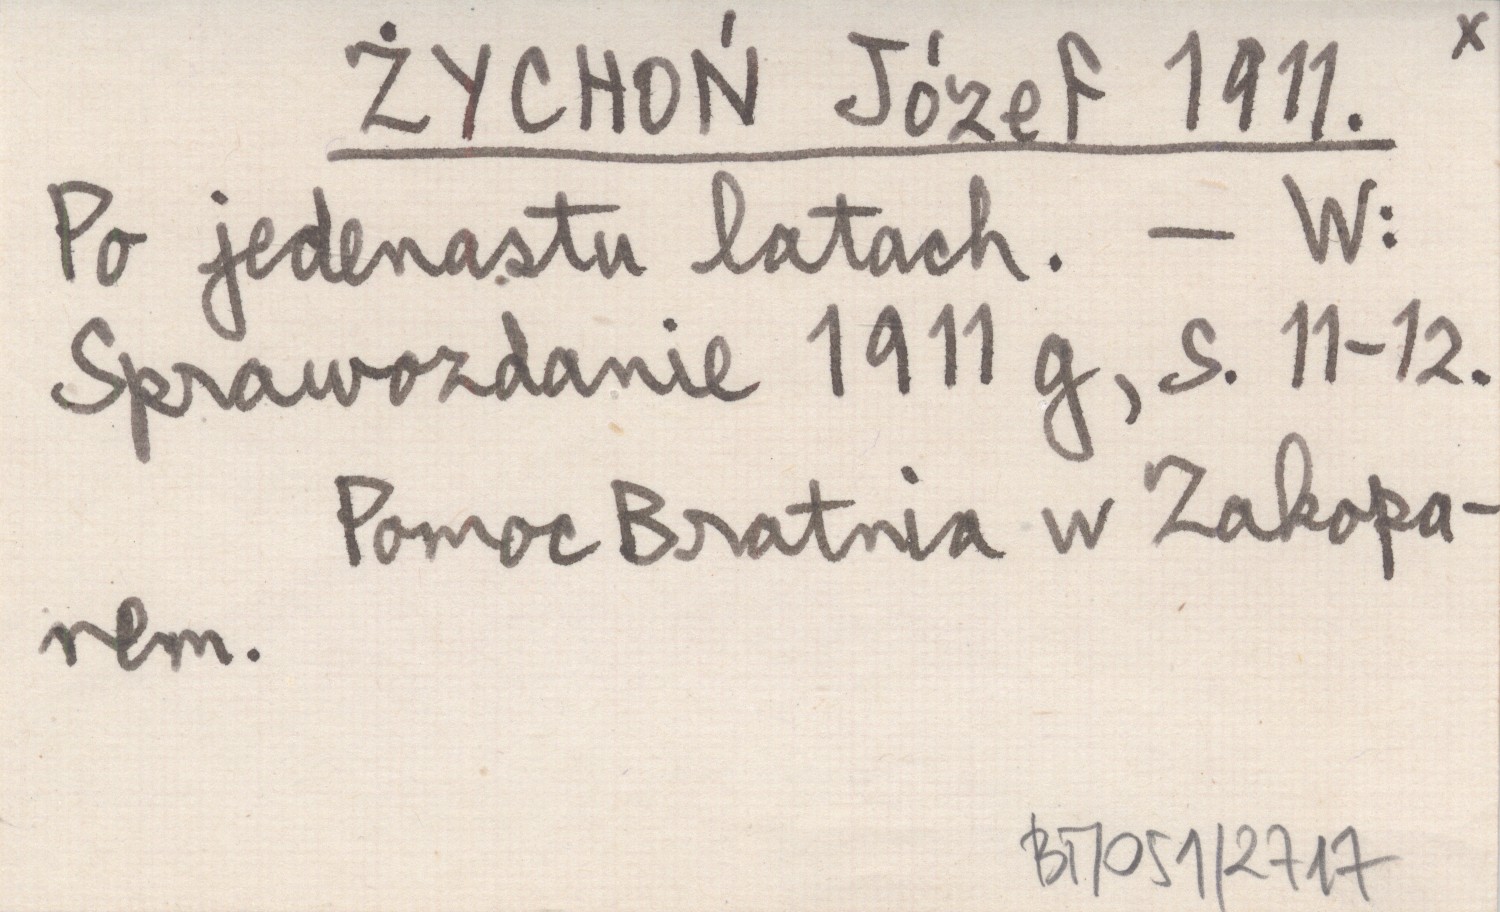 x
ŻYCHOŃ Józef 1911.
Po jedenastu latach. — W:
Sprawozdanie 1911 g, s. 11-12.
Pomoc Bratnia w Zakopa-
nem.
BT/051/2717